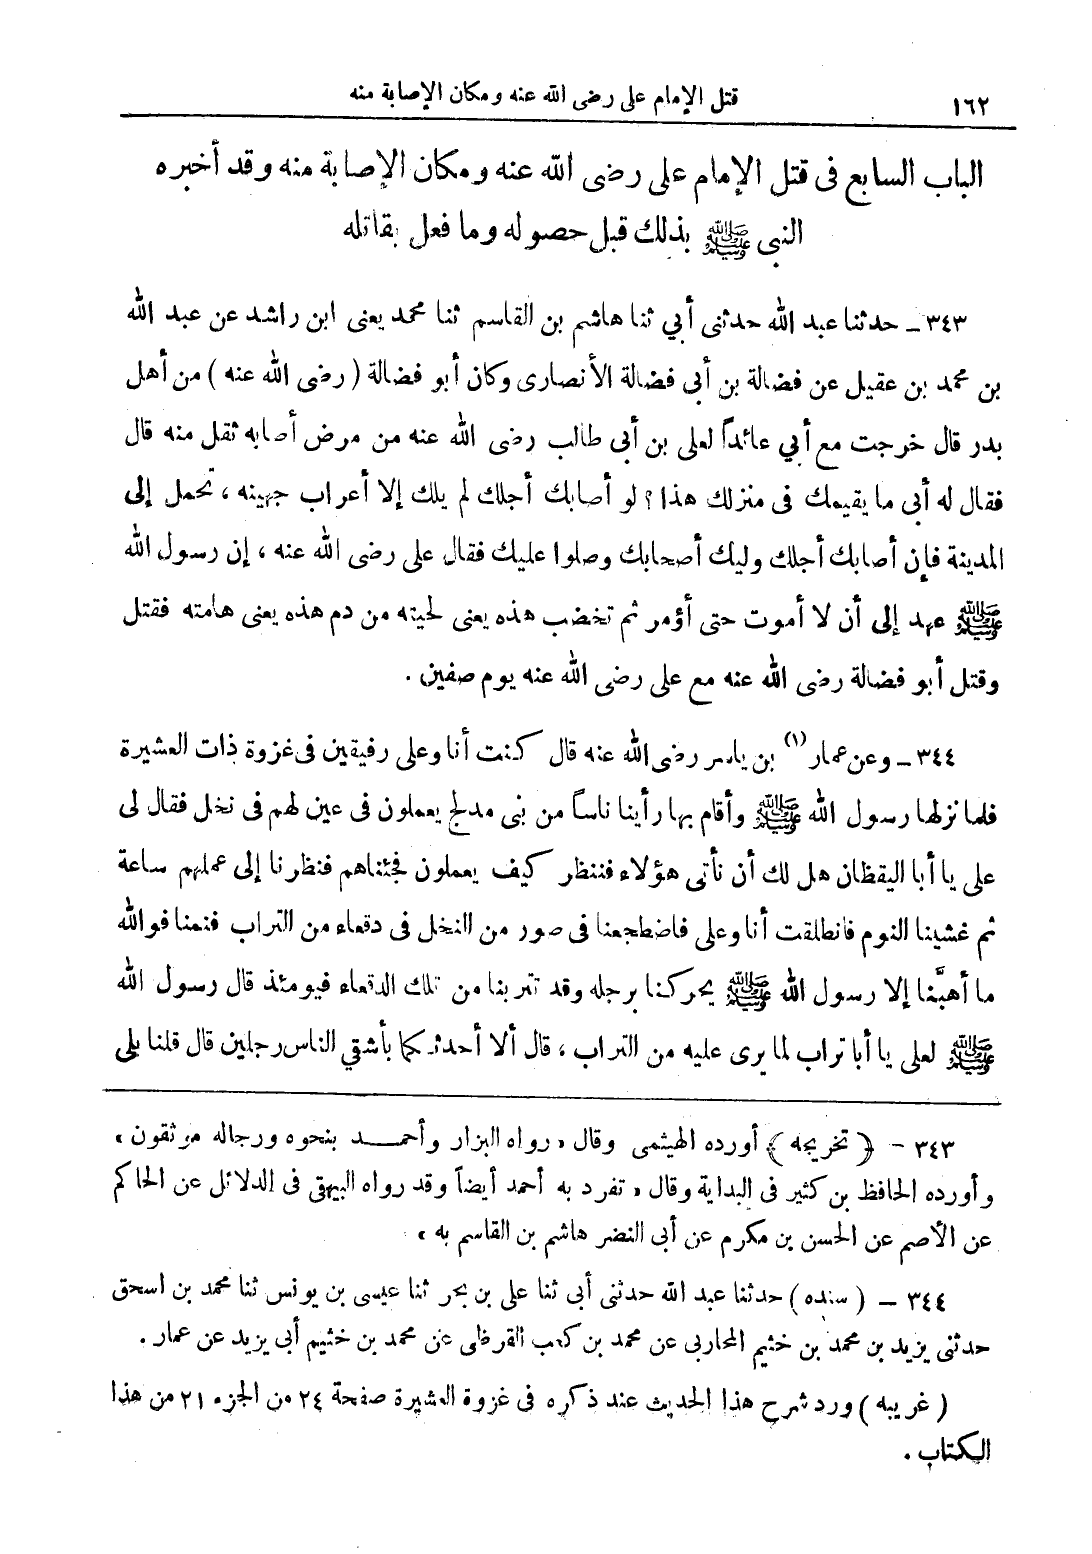 ١٦٢ قتل الإمام على رضى الله عنه ومكان الإصابة منه
الباب السابع فى قتل الإمام على رضى الله عنه ومكان الإصابة منه وقد أخبره
النبى ﷺ بذلك قبل حصوله وما فعل بقاتله
٣٤٣ـ حدثنا عبد الله حدثنى أبي ثنا هاشم بن القاسم ثنا محمد يعنى ابن راشد عن عبد الله
بن محمد بن عقيل عن فضالة بن أبى فضالة الأنصارى وكان أبو فضالة ( رضى الله عنه ) من أهل
بدر قال خرجت مع أبي عائداً لعلى بن أبى طالب رضى الله عنه من مرض أصابه ثقل منه قال
فقال له أبى ما يقيمك فى منزلك هذا ؟ لو أصابك أجلك لم يلك إلا أعراب جهينه ، تحمل إلى
المدينة فإن أصابك أجلك وليك أصحابك وصلوا عليك فقال على رضى الله عنه ، إن رسول الله
ﷺ عهد إلى أن لا أموت حتى أؤمر ثم تخضب هذه يعنى لحيته من دم هذه يعنى هامته فقتل
وقتل أبو فضالة رضى الله عنه مع على رضى الله عنه يوم صفين .
٣٤٤ـ وعن عمار (١) بن ياسر رضى الله عنه قال كنت أنا وعلى رفيقين فى غزوة ذات العشيرة
فلما نزلها رسول الله ﷺ وأقام بها رأينا ناساً من بنى مدلج يعملون فى عين لهم فى نخل فقال لى
على يا أبا اليقظان هل لك أن نأتى هؤلاء فننظر كيف يعملون فجئناهم فنظرنا إلى عملهم ساعة
ثم غشينا النوم فانطلقت أنا وعلى فاضطجعنا فى صور من النخل فى دقعاء من التراب فنمنا فوالله
ما أهبَّنا إلا رسول الله ﷺ يحركنا برجله وقد تتربنا من تلك الدقعاء فيومئذ قال رسول الله
ﷺ لعلى يا أبا تراب لما يرى عليه من التراب ، قال ألا أحدثكما بأشقي الناس رجلين قال قلنا بلى
٣٤٣ - ﴿ تخريجه ﴾ أورده الهيثمى وقال « رواه البزار وأحمد بنحوه ورجاله موثقون »
وأورده الحافظ بن كثير فى البداية وقال « تفرد به أحمد أيضاً وقد رواه البيهقى فى الدلائل عن الحاكم
عن الأصم عن الحسن بن مكرم عن أبى النضر هاشم بن القاسم به »
٣٤٤ - ( سنده ) حدثنا عبد الله حدثنى أبى ثنا على بن بحر ثنا عيسى بن يونس ثنا محمد بن اسحق
حدثنى يزيد بن محمد بن خثيم المحاربى عن محمد بن كعب القرظى عن محمد بن خثيم أبى يزيد عن عمار .
( غريبه ) ورد شرح هذا الحديث عند ذكره فى غزوة العشيرة صفحة ٢٤ من الجزء ٢١ من هذا
الكتاب .